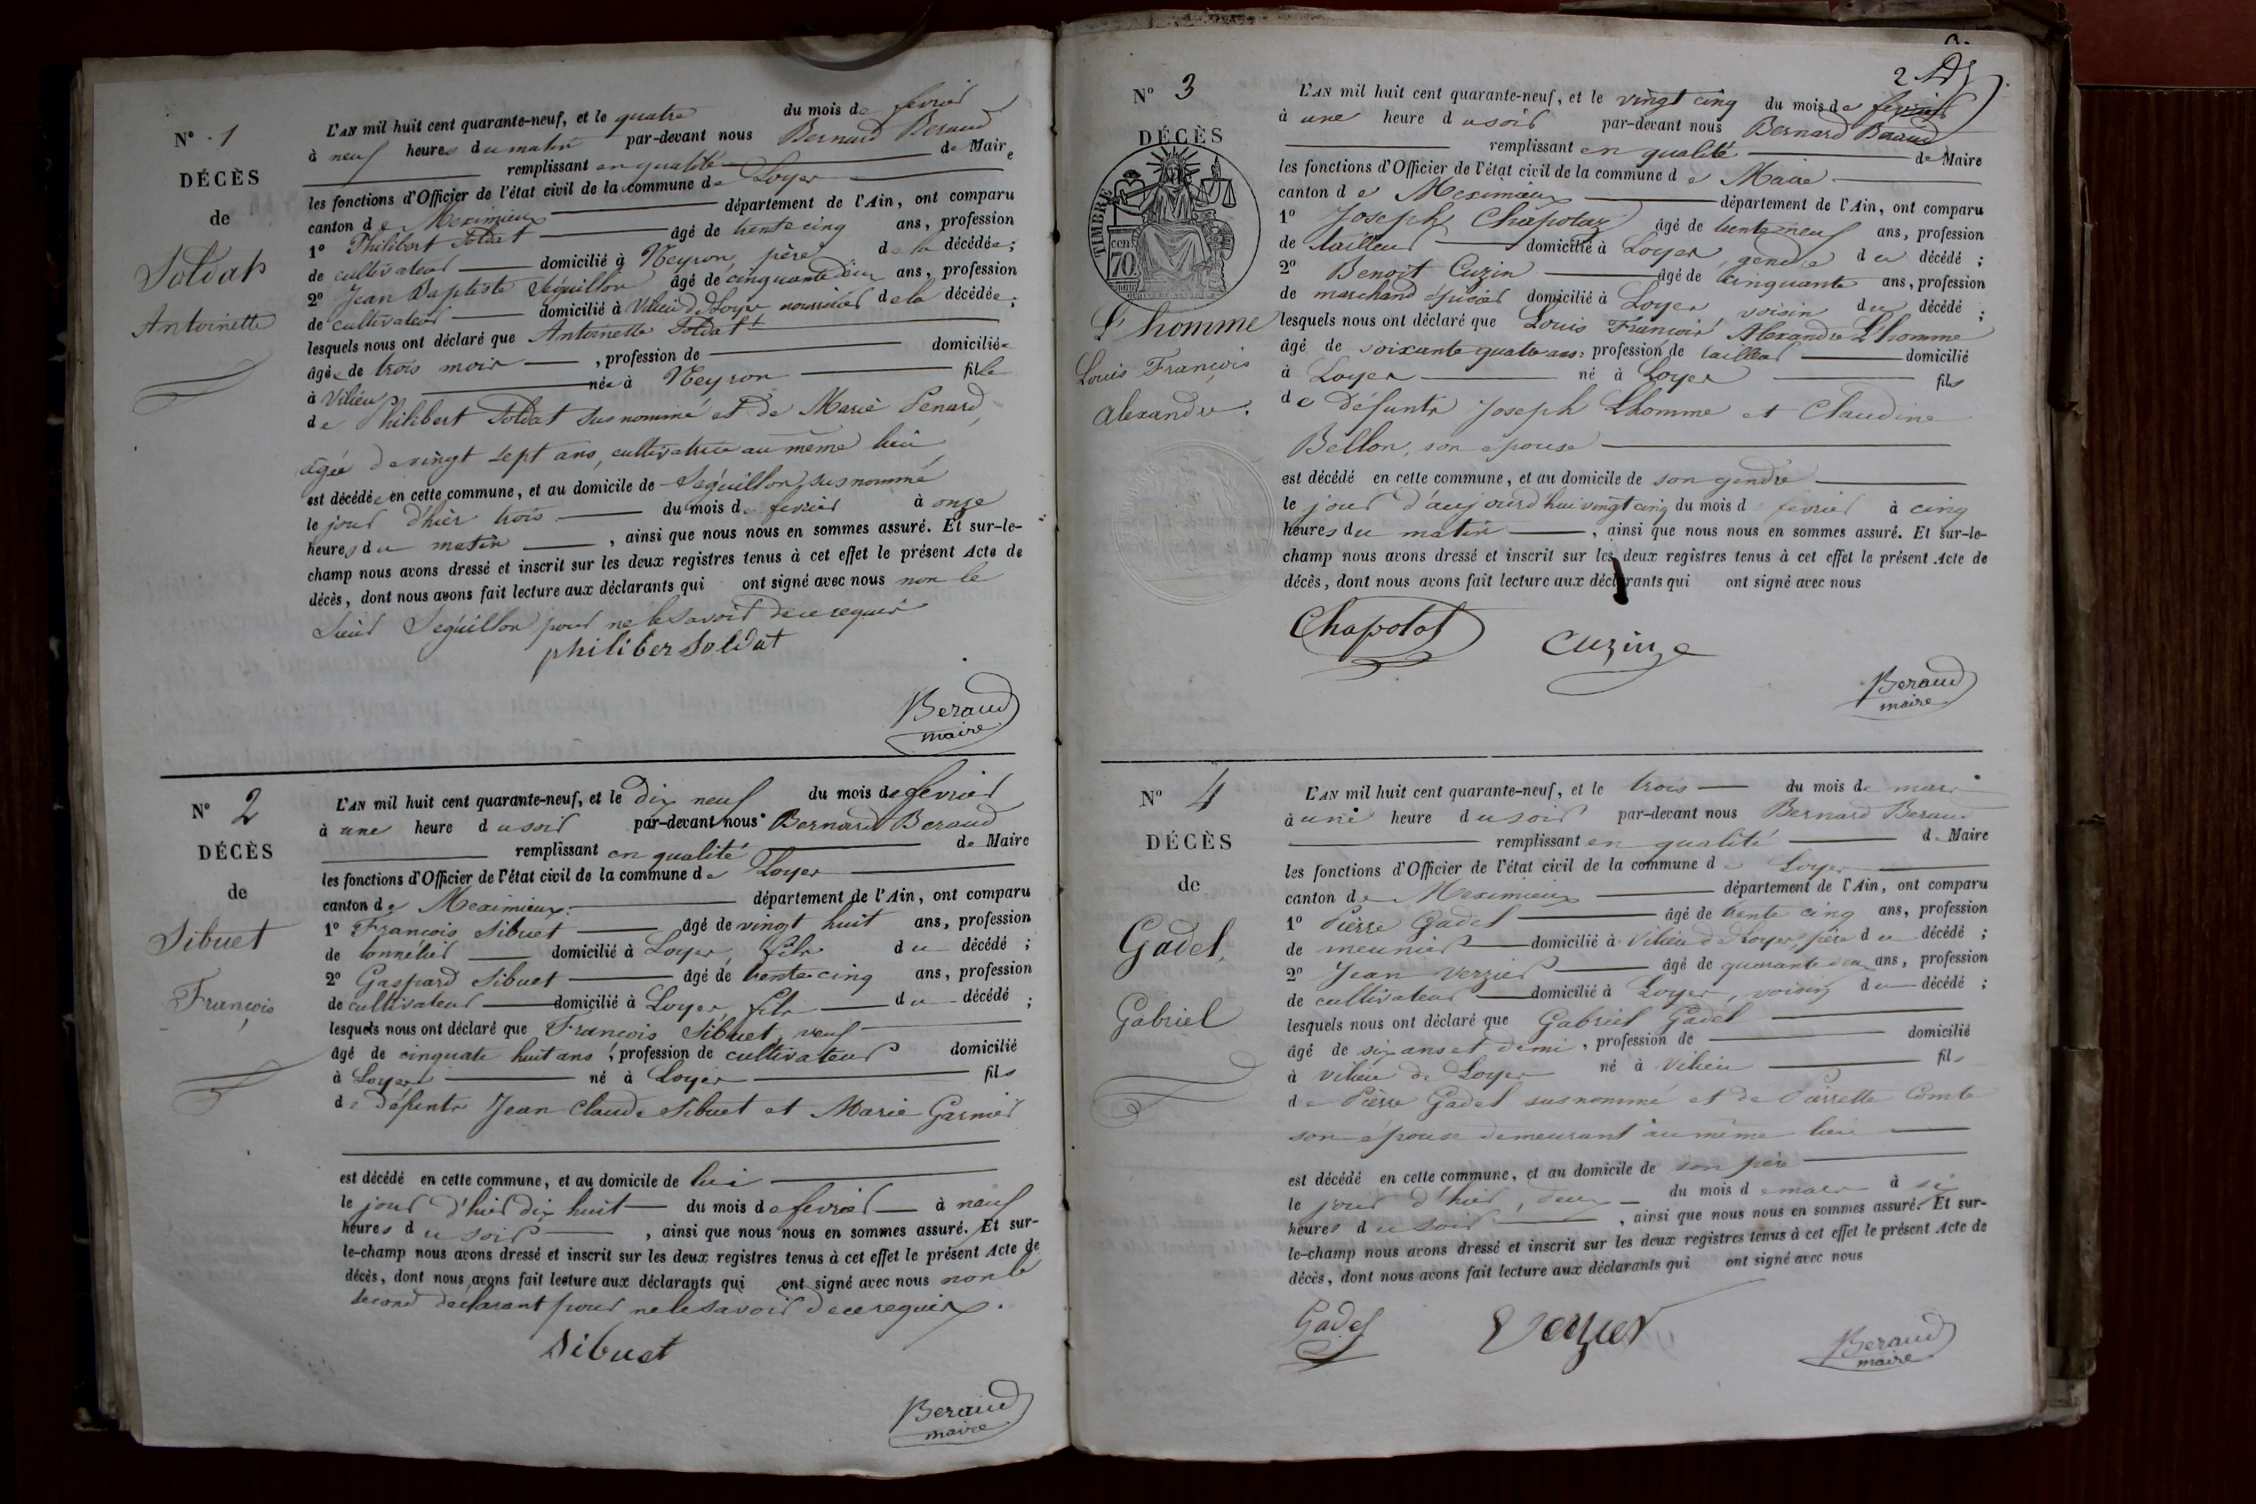 N° 1
DÉCÈS
de
Soldat
Antoinette
L'AN mil huit cent quarante-neuf, et le quatre du mois de fevrier
à neuf heures du matin par-devant nous Bernard Beraud
remplissant en qualité de Maire
les fonctions d'Officier de l'état civil de la commune de Loyes
canton de Meximieux département de l'Ain, ont comparu
1° Philibert Soldat âgé de trente cinq ans, profession
de cultivateur domicilié à Neyron, père de la décédée;
2° Jean Baptiste Séguillon âgé de cinquante deux ans, profession
de cultivateur domicilié à Vilieu de Loyes nourricier de la décédée;
lesquels nous ont déclaré que Antoinette Soldat
âgée de trois mois, profession de domiciliée
à Vilieu née à Neyron fille
de Philibert Soldat susnommé et de Marie Penard,
agée de vingt sept ans, cultivatrice au même lieu
est décédée en cette commune, et au domicile de Séguillon, susnommé
le jour d'hier trois du mois de fevrier à onze
heures du matin, ainsi que nous nous en sommes assuré. Et sur-le-
champ nous avons dressé et inscrit sur les deux registres tenus à cet effet le présent Acte de
décès, dont nous avons fait lecture aux déclarants qui ont signé avec nous non le
sieur Séguillon pour ne le savoir de ce requis
philiber Soldat
Beraud
maire
N° 2
DÉCÈS
de
Sibuet
François
L'AN mil huit cent quarante-neuf, et le dix neuf du mois de fevrier
à une heure du soir par-devant nous Bernard Beraud
remplissant en qualité de Maire
les fonctions d'Officier de l'état civil de la commune de Loyes
canton de Meximieux département de l'Ain, ont comparu
1° François Sibuet âgé de vingt huit ans, profession
de tonnélier domicilié à Loyes, fils du décédé;
2° Gaspard Sibuet âgé de trente cinq ans, profession
de cultivateur domicilié à Loyes, fils du décédé;
lesquels nous ont déclaré que François Sibuet, veuf
âgé de cinquate huit ans, profession de cultivateur domicilié
à Loyes né à Loyes fils
de défunts Jean Claude Sibuet et Marie Garnier
est décédé en cette commune, et au domicile de lui
le jour d'hier dix huit du mois de fevrier à neuf
heures du soir, ainsi que nous nous en sommes assuré. Et sur-
le-champ nous avons dressé et inscrit sur les deux registres tenus à cet effet le présent Acte de
décès, dont nous avons fait lecture aux déclarants qui ont signé avec nous non le
second déclarant pour ne le savoir de ce requis.
Sibuet
Beraud
maire
2
N° 3
DÉCÈS
TIMBRE
cent.
70
L'homme
Louis François
alexandre.
L'AN mil huit cent quarante-neuf, et le vingt cinq du mois de fevrier
à une heure du soir par-devant nous Bernard Beraud
remplissant en qualité de Maire
les fonctions d'Officier de l'état civil de la commune de Maire
canton de Meximieux département de l'Ain, ont comparu
1° Joseph Chapotaz âgé de trente neuf ans, profession
de tailleur domicilié à Loyes, gendre du décédé;
2° Benoit Cuzin âgé de cinquante ans, profession
de marchand épicier domicilié à Loyes, voisin du décédé;
lesquels nous ont déclaré que Louis François Alexandre L'homme
âgé de soixante quatre ans, profession de tailleur domicilié
à Loyes né à Loyes fils
de défunts Joseph Lhomme et Claudine
Bellon, son epouse
est décédé en cette commune, et au domicile de son gendre
le jour d'aujourd'hui vingt cinq du mois d fevrier à cinq
heures du matin, ainsi que nous nous en sommes assuré. Et sur-le-
champ nous avons dressé et inscrit sur les deux registres tenus à cet effet le présent Acte de
décès, dont nous avons fait lecture aux déclarants qui ont signé avec nous
Chapotat
Cuzin
Beraud
maire
N° 4
DÉCÈS
de
Gadel,
Gabriel
L'AN mil huit cent quarante-neuf, et le trois du mois de mars
à une heure du soir par-devant nous Bernard Beraud
remplissant en qualité de Maire
les fonctions d'Officier de l'état civil de la commune de Loyes
canton de Meximieux département de l'Ain, ont comparu
1° Pierre Gadel âgé de trente cinq ans, profession
de meunier domicilié à Vilieu de Loyes, père du décédé;
2° Jean Verzier âgé de quarante deux ans, profession
de cultivateur domicilié à Loyes, voisin du décédé;
lesquels nous ont déclaré que Gabriel Gadel
âgé de six ans et demi, profession de domicilié
à Vilieu de Loyes né à Vilieu fils
de Pierre Gadel susnommé et de Pierrette Comte
son épouse demeurant au même lieu
est décédé en cette commune, et au domicile de son père
le jour d'hier, deux du mois de mars à six
heures du soir, ainsi que nous nous en sommes assuré. Et sur-
le-champ nous avons dressé et inscrit sur les deux registres tenus à cet effet le présent Acte de
décès, dont nous avons fait lecture aux déclarants qui ont signé avec nous
Gadel
Verzier
Beraud
maire